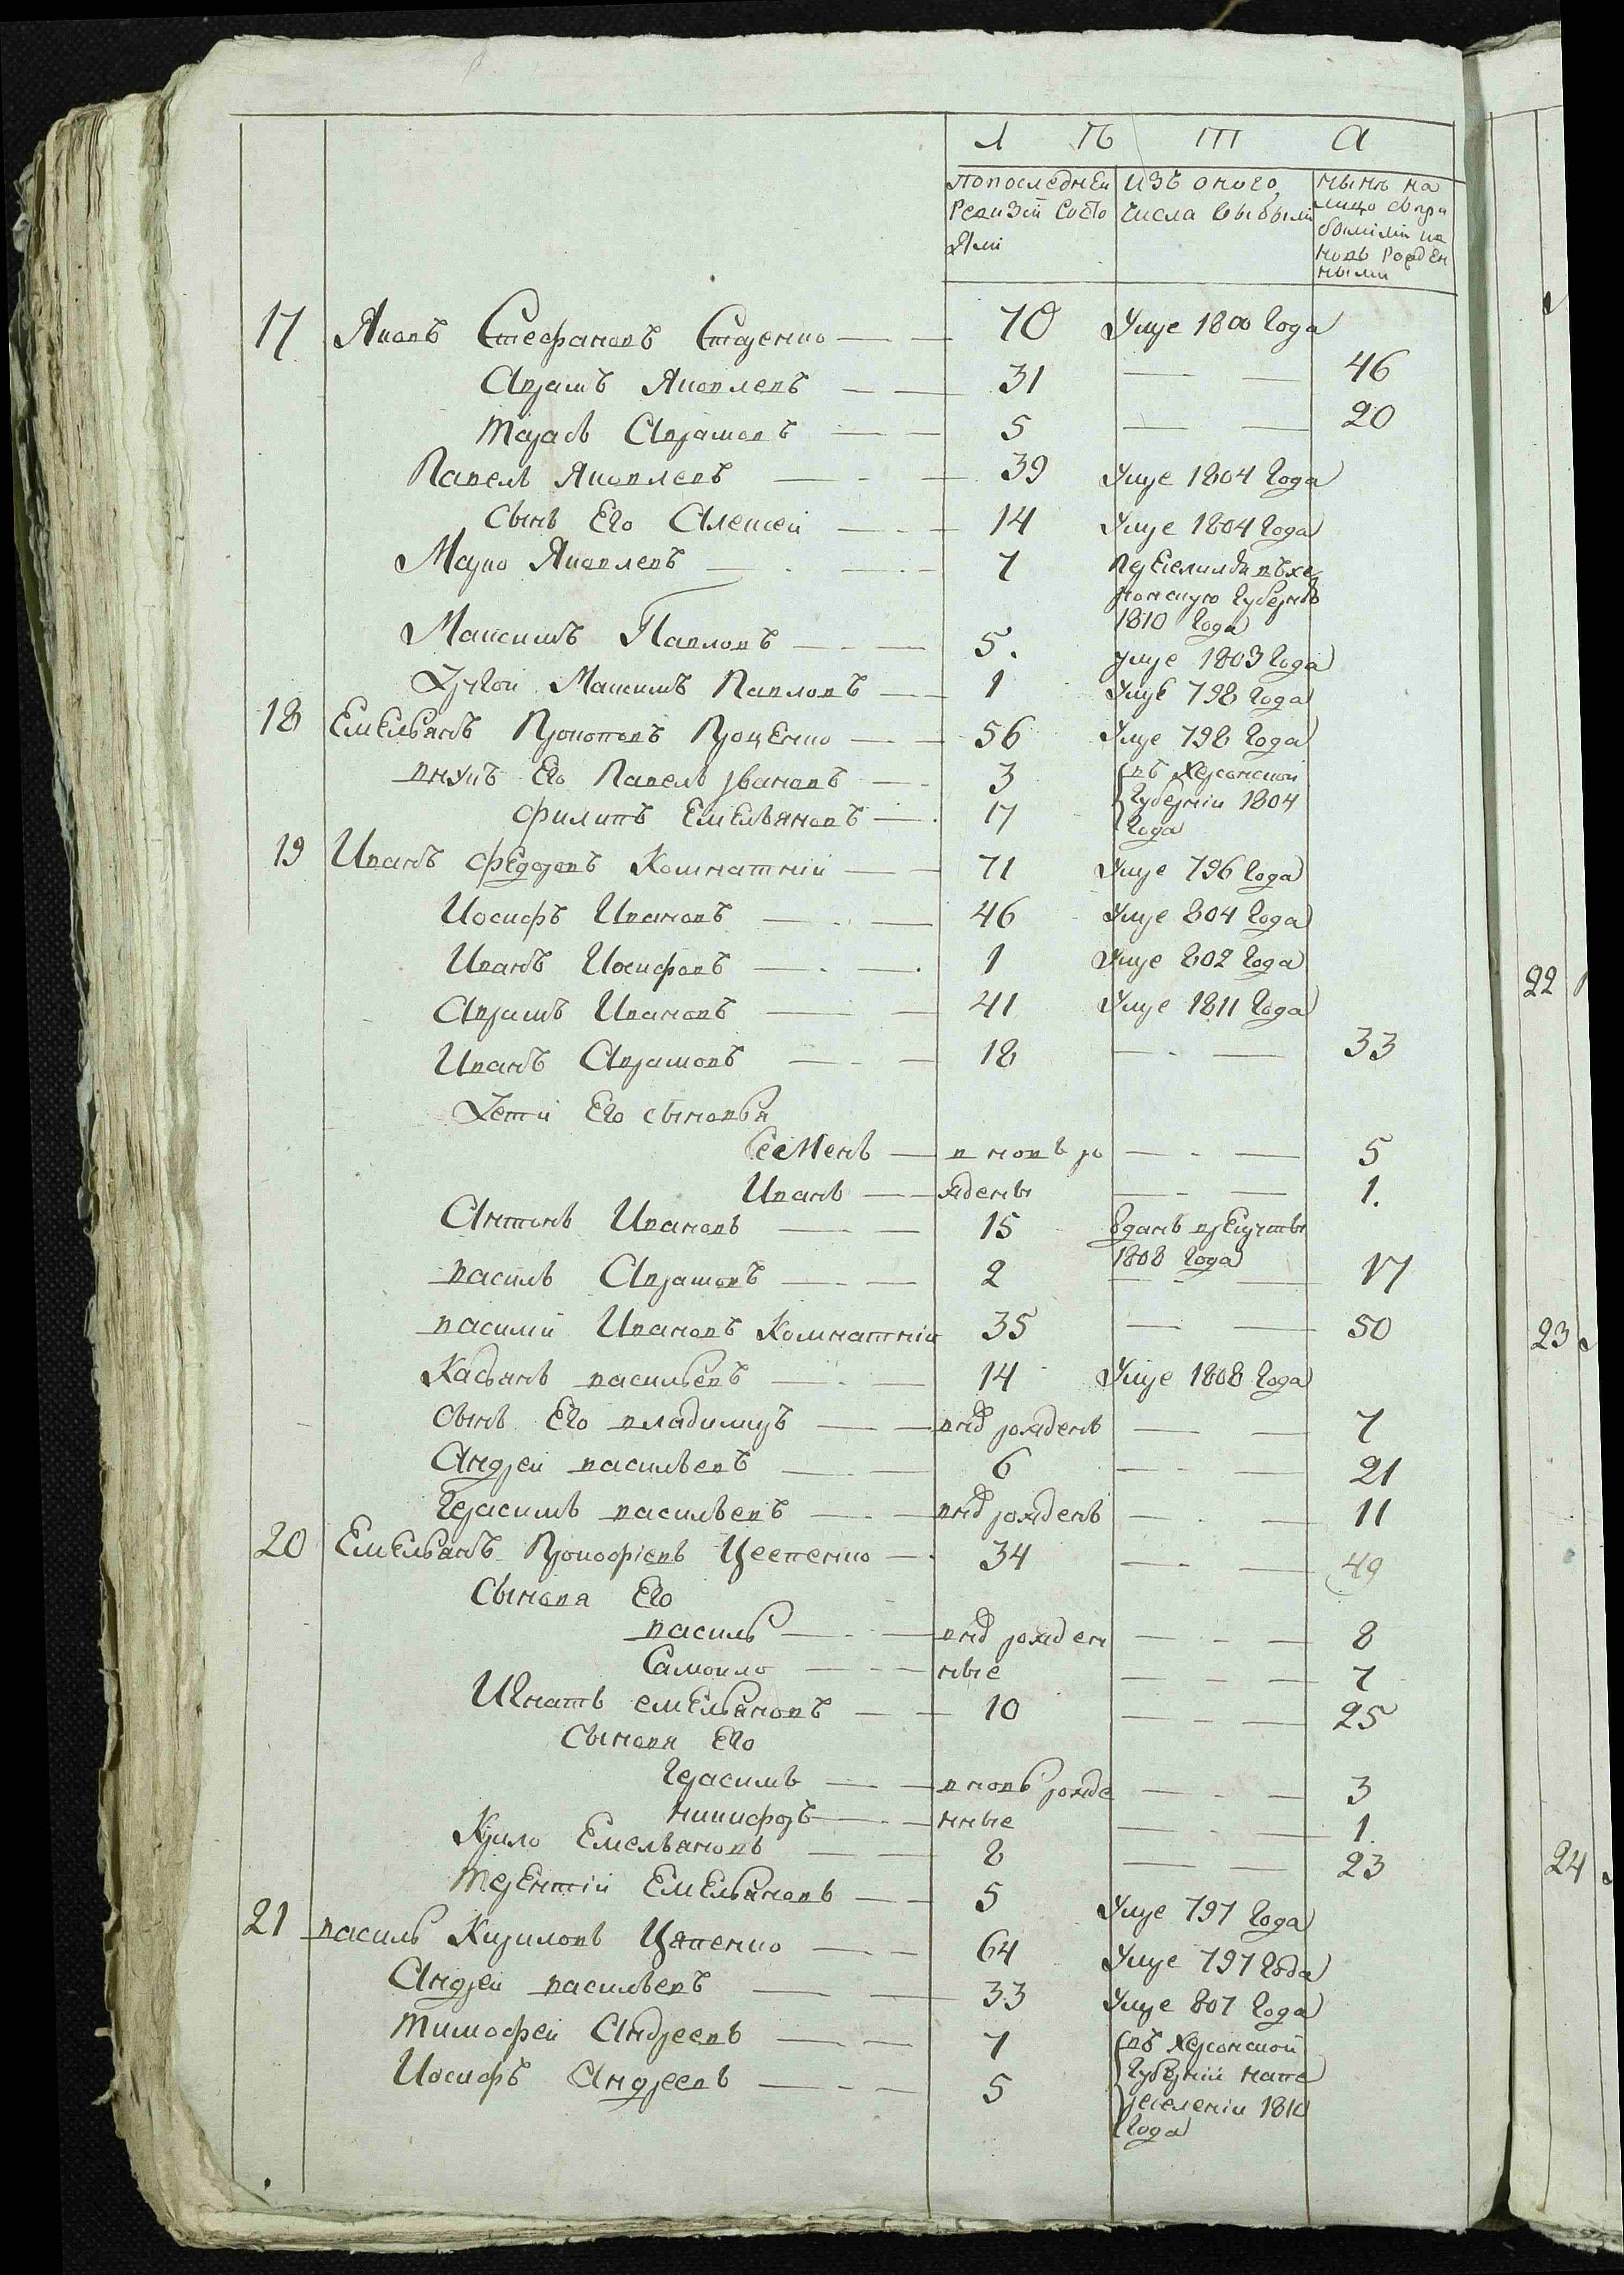 Л Ѣ Т А
по последнеи ревизіи состояли
изъ оного числа выбыли
нынѣ на лицо съ прибылими и вновь рожденными
17 Яковъ Стефановъ 70 Умре 1800 года
Аврамъ Яковлевъ — — 31 — — 46
Тарасъ Аврамовъ — — 5 — — 20
Павелъ Яковлевъ — — 39 Умре 1804 года
Сынъ Его Алексей — — 14 Умре 1804 года
Марко Яковлевъ — — 7 Переселился въ херсонскую губернію 1810 года
Максимъ Павловъ — — 5. умре 1803 года
Другои Максимъ Павловъ — — 1 Умре 798 года
18 Емельянъ Прокоповъ Проценко — — 56 Умре 798 года
внукъ Его Павелъ Ивановъ — 3 въ Херсонскои
Филипъ Емельяновъ — 17 губерніи 1804 года
19 Иванъ Федоровъ Комнатніи — — 71 Умре 796 года
Иосифъ Ивановъ — — 46 Умре 804 года
Иванъ Иосифовъ — — 1 Умре 802 года
Аврамъ Ивановъ — — 41 Умре 1811 года
Иванъ Аврамовъ — — 18 — — 33
Дети Его сыновья
Семенъ — вновь ро — — 5
Иванъ — — ждены — — 1.
Антонъ Ивановъ — — 15 Зданъ врекруты 1808 года
василь Аврамовъ — — 2 — — 17
василий Ивановъ Комнатніи 35 — — 50
Касьянъ васильевъ — — 14 Умре 1808 года
Сынъ Его владимиръ — — вно рожденъ — — 7
Андреи васильевъ — — 6 — — 21
Герасимъ васильевъ — — вно рожденъ — — 11
20 Емельянъ Прокофіевъ 34 — — 49
Сыновя Его
василь — — вно рожден — — 8
Самоило — — ные — — 7
Игнатъ емельяновъ — — 10 — — 25
Сыновя Его
Герасимъ — — вновь рожде — — 3
никифоръ — — нные — — 1.
Курило Емельяновъ — — 8 — — 23
Терентій Емельяновъ — — 5 Умре 797 года
21 василь Кириловъ Цяпенко — — 64 Умре 797 года
Андреи васильевъ — — 33 Умре 807 года
Тимофеи Андреевъ — — 7 въ Херсонской
Иосифъ Андреевъ — — 5 губерніи на переселеніи 1810 года
22
23
24